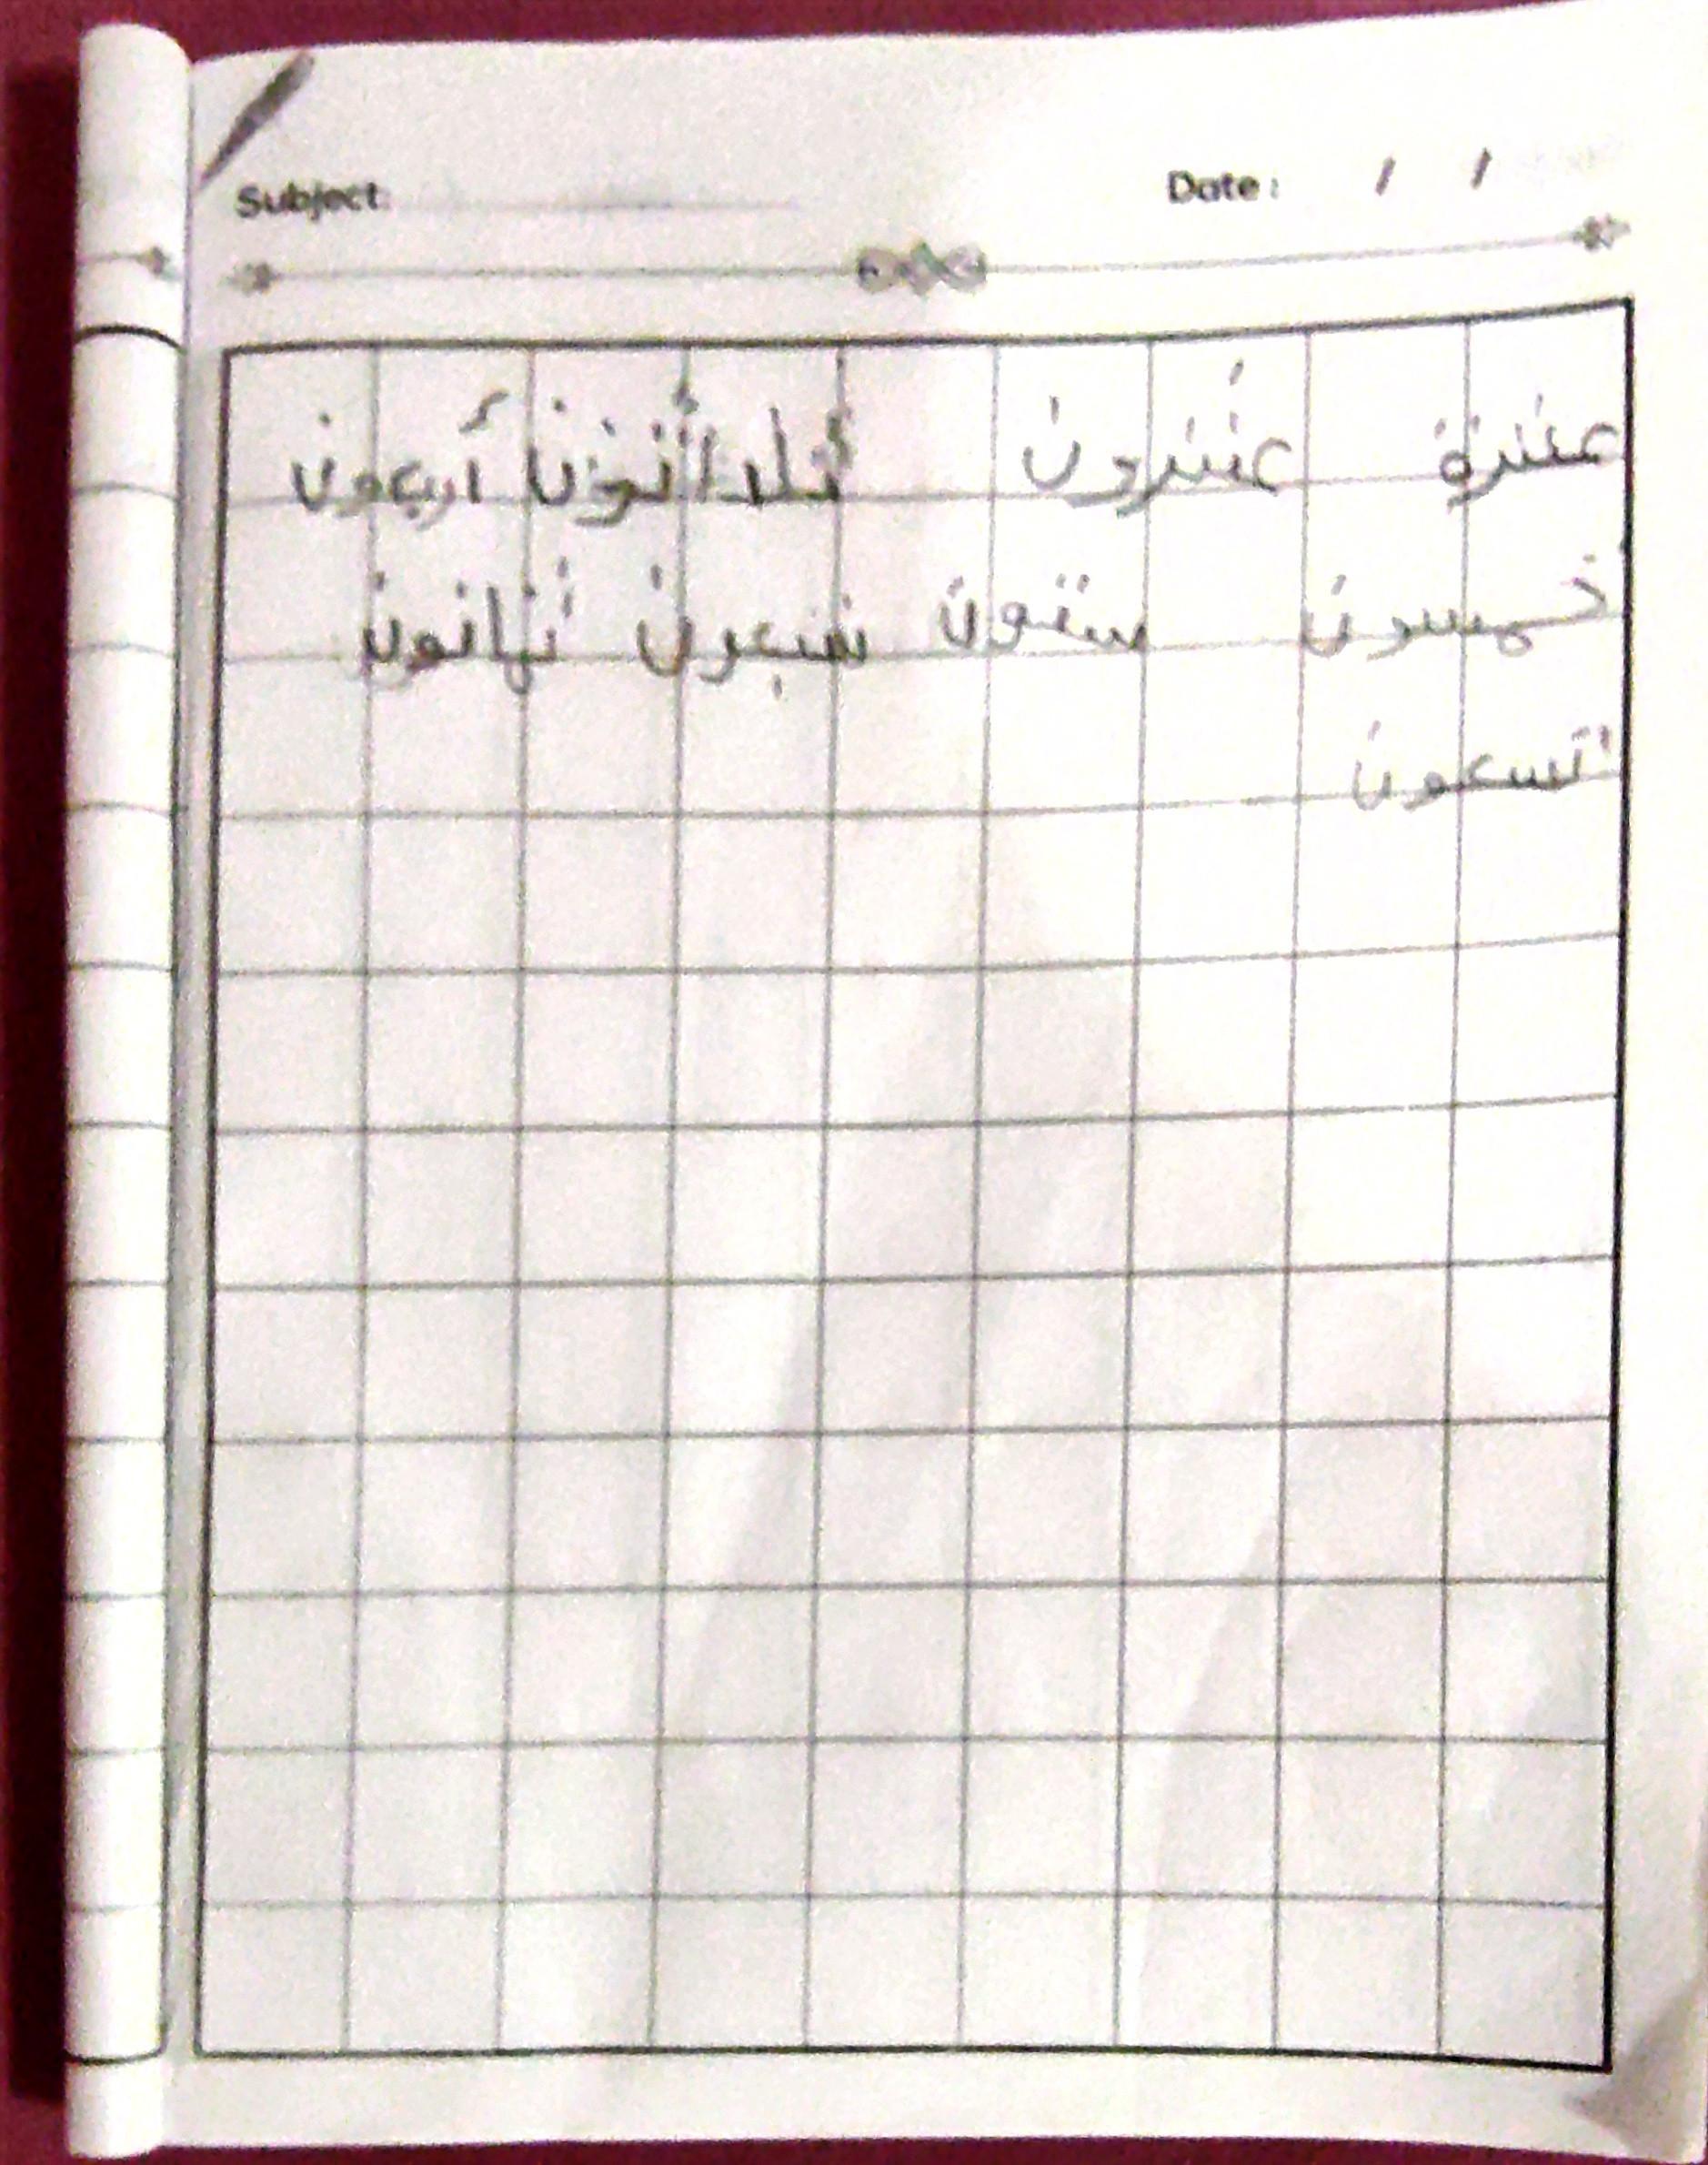 Subject: Date: / /
عشرة عشرون ثلااثون أربعون
خمسون ستون سبعون ثمانون
تسعون